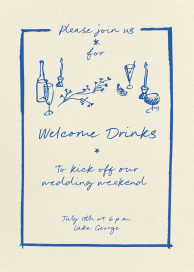 Please join us
for
Welcome Drinks
To kick off our
wedding weekend
July 18th at 6 p.m.
Lake George